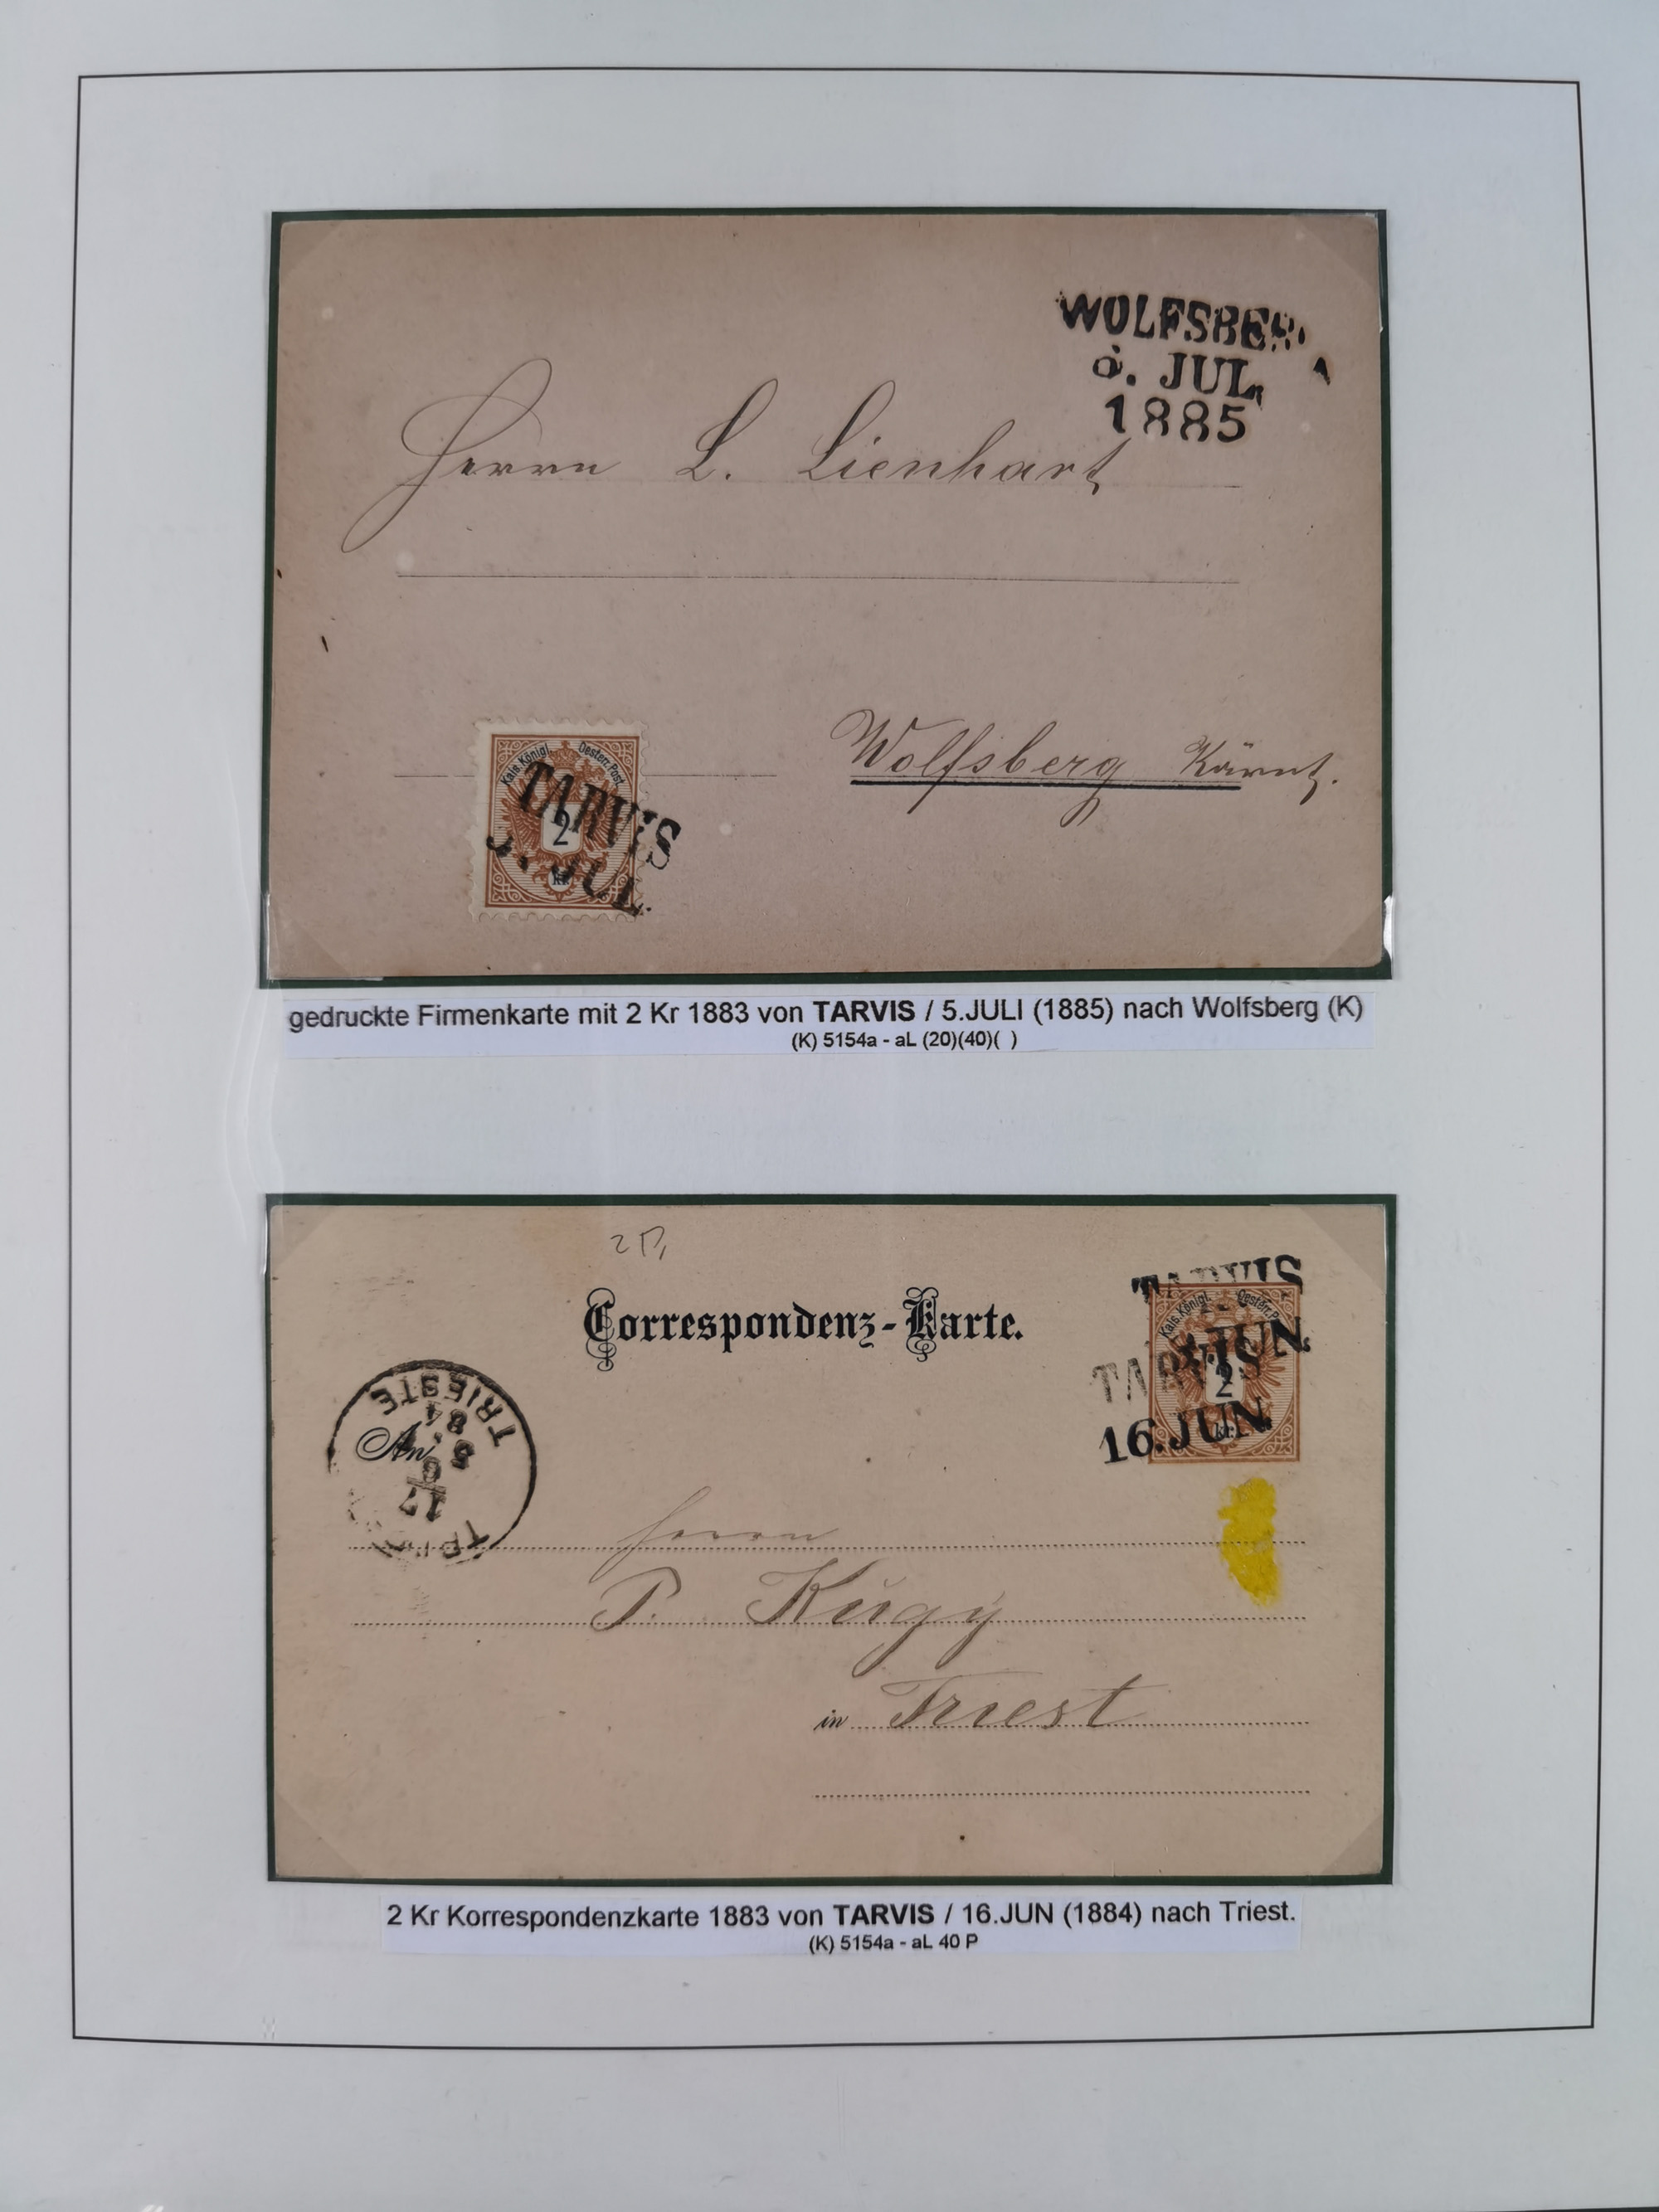 WOLFSBER
5. JUL.
1885
Herrn L. Lienhart
Wolfsberg Kärnt.
Kais. Königl. Oesterr. Post.
2
kr.
TARVIS
5. JUL.
gedruckte Firmenkarte mit 2 Kr 1883 von TARVIS / 5.JULI (1885) nach Wolfsberg (K)
(K) 5154a - aL (20)(40)( )
Correspondenz-Karte.
TARVIS
JUN.
Kais. Königl. Oesterr. Post.
2
kr.
TARVIS
16.JUN.
TRIESTE
84
5
6
17
An
Herrn
P. Kugy
in Triest
2 Kr Korrespondenzkarte 1883 von TARVIS / 16.JUN (1884) nach Triest.
(K) 5154a - aL 40 P